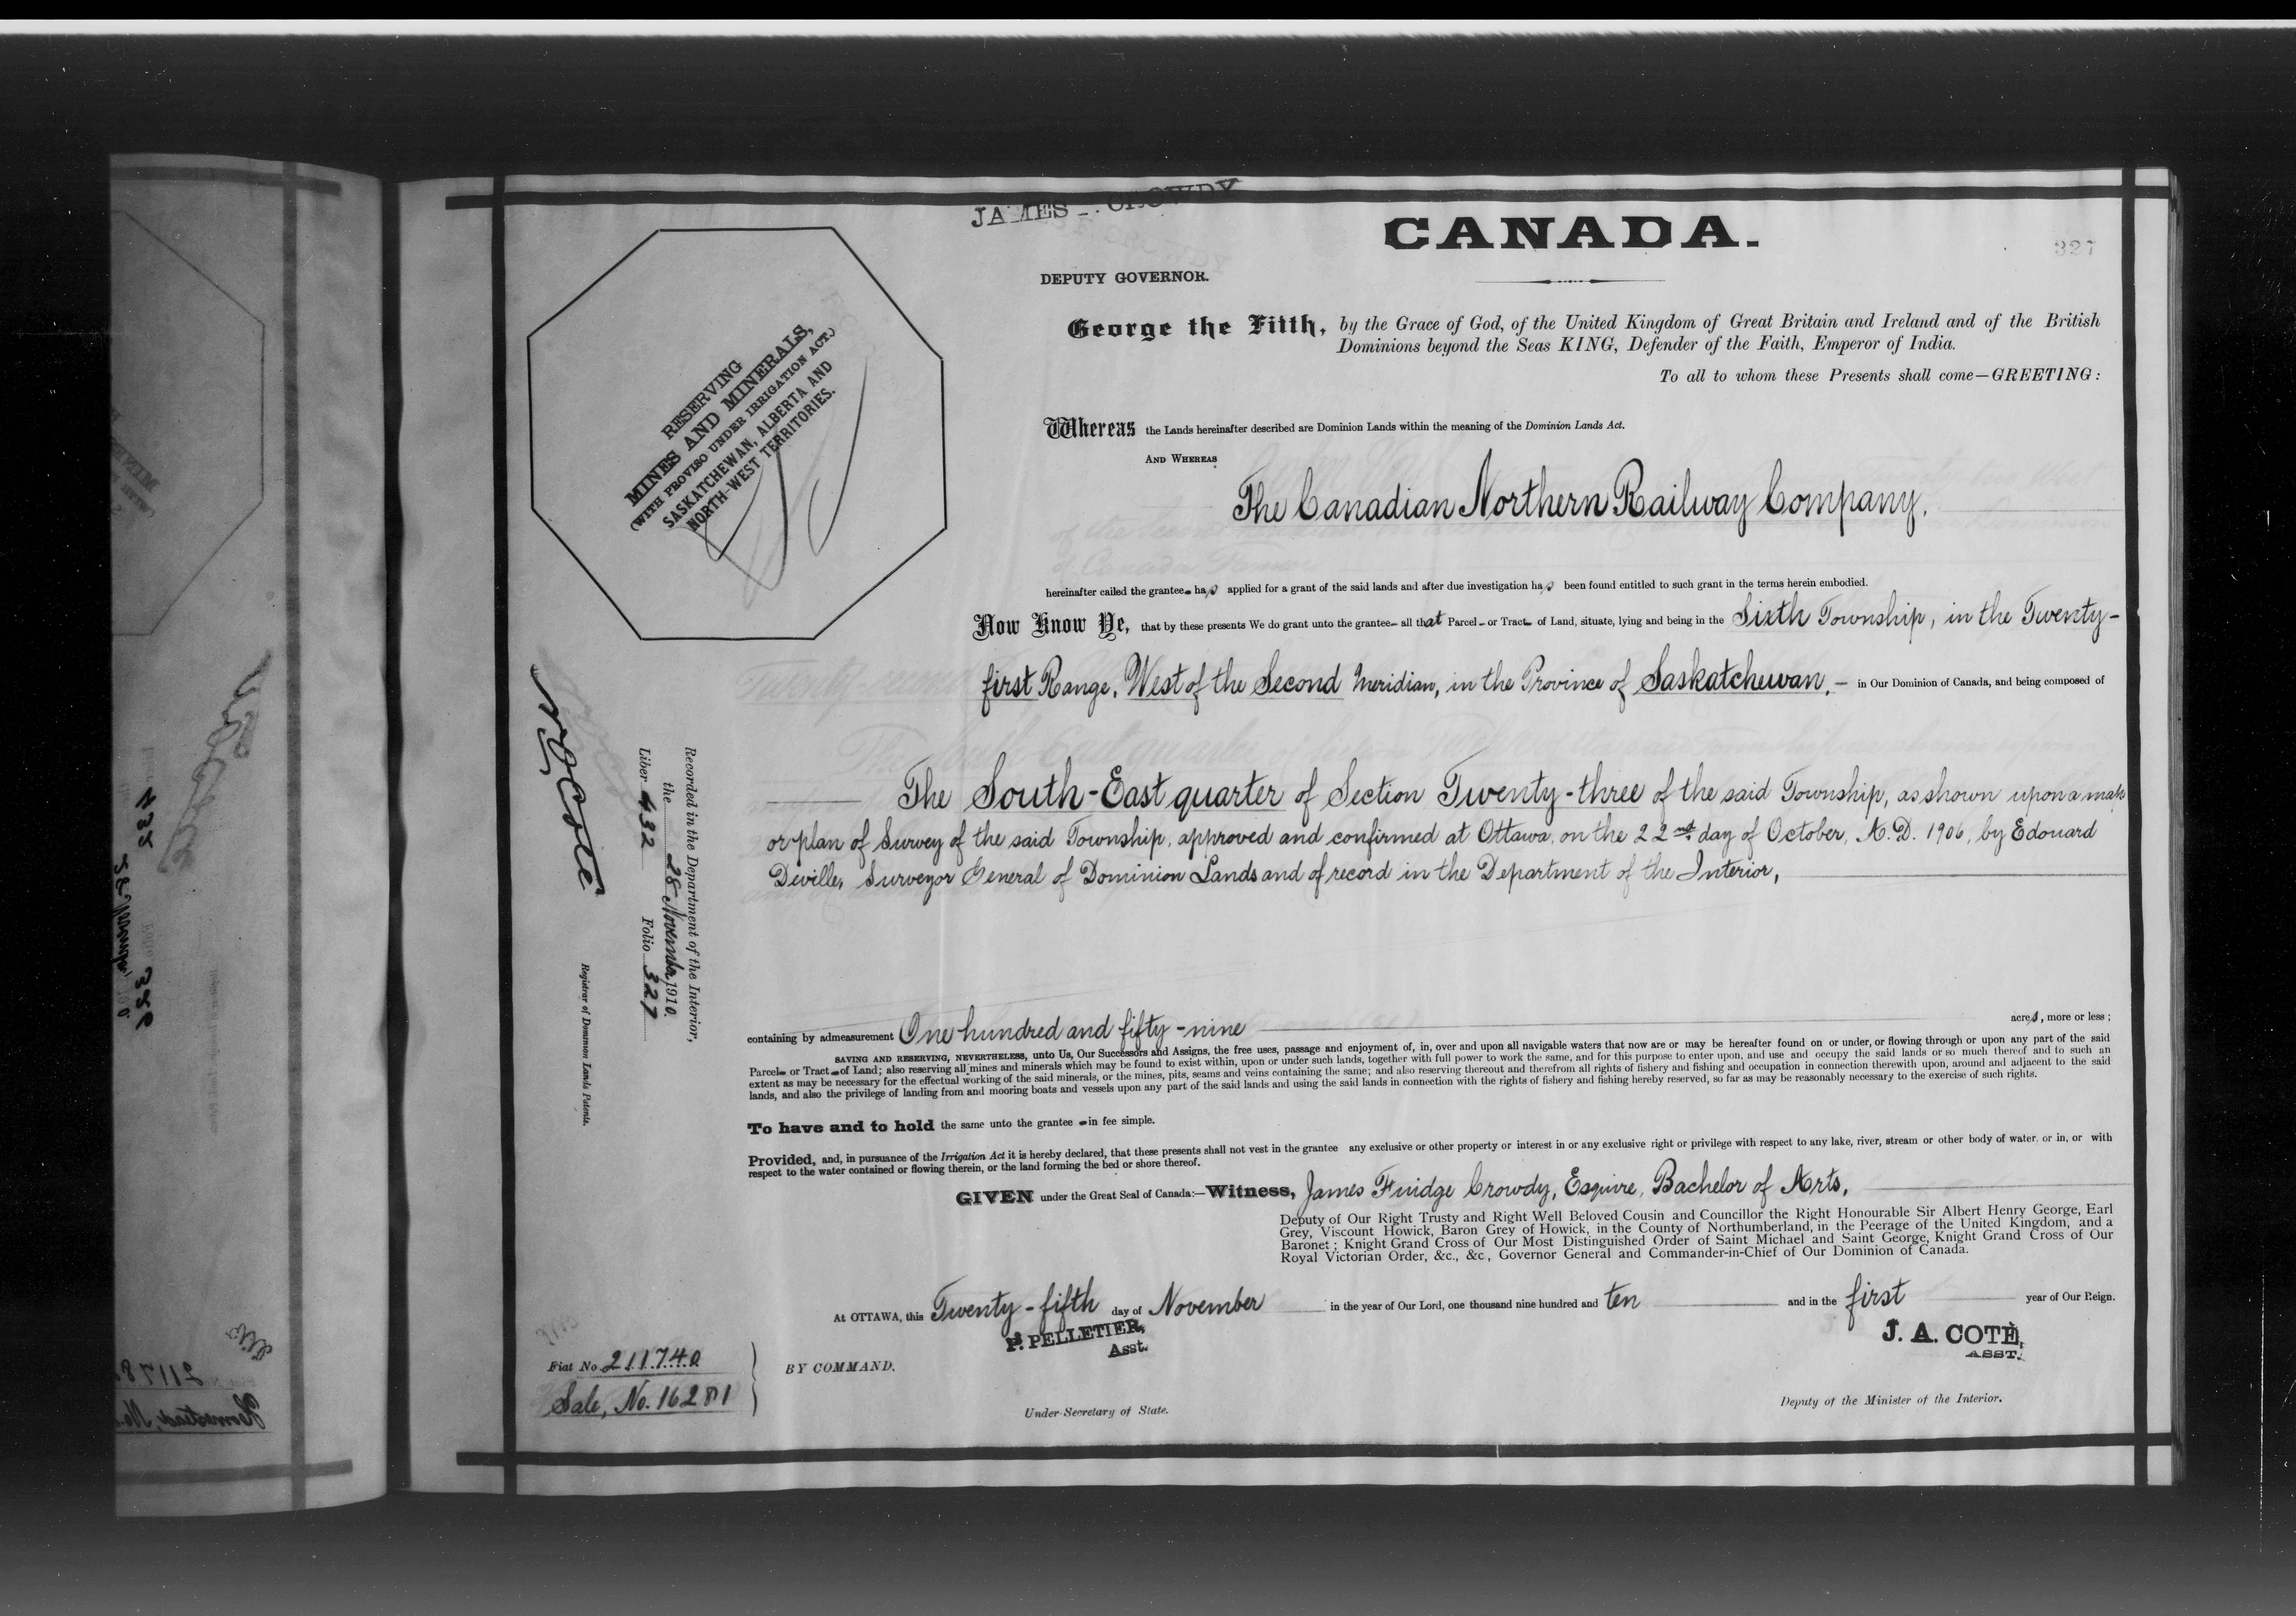 JAMES F. CROWDY
CANADA.
327
DEPUTY GOVERNOR.
George the Fifth, by the Grace of God, of the United Kingdom of Great Britain and Ireland and of the British
Dominions beyond the Seas KING, Defender of the Faith, Emperor of India.
To all to whom these Presents shall come—GREETING:
RESERVING
MINES AND MINERALS,
(WITH PROVISO UNDER IRRIGATION ACT.)
SASKATCHEWAN, ALBERTA AND
NORTH-WEST TERRITORIES.
Whereas the Lands hereinafter described are Dominion Lands within the meaning of the Dominion Lands Act.
AND WHEREAS
The Canadian Northern Railway Company,
hereinafter called the grantee has applied for a grant of the said lands and after due investigation has been found entitled to such grant in the terms herein embodied.
Now Know Ye, that by these presents We do grant unto the grantee all that Parcel or Tract of Land, situate, lying and being in the Sixth Township, in the Twenty-
first Range, West of the Second Meridian, in the Province of Saskatchewan, — in Our Dominion of Canada, and being composed of
The South-East quarter of Section Twenty-three of the said Township, as shown upon a map
or plan of Survey of the said Township, approved and confirmed at Ottawa, on the 22nd day of October, A.D. 1906, by Edouard
Deville, Surveyor General of Dominion Lands and of record in the Department of the Interior,
Recorded in the Department of the Interior,
the 28 November 1910.
Liber 432 Folio 327
N.O. Coté
Registrar of Dominion Lands Patents.
containing by admeasurement One hundred and fifty-nine acres, more or less;
SAVING AND RESERVING, NEVERTHELESS, unto Us, Our Successors and Assigns, the free uses, passage and enjoyment of, in, over and upon all navigable waters that now are or may be hereafter found on or under, or flowing through or upon any part of the said
Parcel or Tract of Land; also reserving all mines and minerals which may be found to exist within, upon or under such lands, together with full power to work the same, and for this purpose to enter upon, and use and occupy the said lands or so much thereof and to such an
extent as may be necessary for the effectual working of the said minerals, or the mines, pits, seams and veins containing the same; and also reserving thereout and therefrom all rights of fishery and fishing and occupation in connection therewith upon, around and adjacent to the said
lands, and also the privilege of landing from and mooring boats and vessels upon any part of the said lands and using the said lands in connection with the rights of fishery and fishing hereby reserved, so far as may be reasonably necessary to the exercise of such rights.
To have and to hold the same unto the grantee in fee simple.
Provided, and, in pursuance of the Irrigation Act it is hereby declared, that these presents shall not vest in the grantee any exclusive or other property or interest in or any exclusive right or privilege with respect to any lake, river, stream or other body of water, or in, or with
respect to the water contained or flowing therein, or the land forming the bed or shore thereof.
GIVEN under the Great Seal of Canada:—Witness, James Fuidge Crowdy, Esquire, Bachelor of Arts,
Deputy of Our Right Trusty and Right Well Beloved Cousin and Councillor the Right Honourable Sir Albert Henry George, Earl
Grey, Viscount Howick, Baron Grey of Howick, in the County of Northumberland, in the Peerage of the United Kingdom, and a
Baronet; Knight Grand Cross of Our Most Distinguished Order of Saint Michael and Saint George, Knight Grand Cross of Our
Royal Victorian Order, &c., &c, Governor General and Commander-in-Chief of Our Dominion of Canada.
At OTTAWA, this Twenty-fifth day of November in the year of Our Lord, one thousand nine hundred and ten and in the first year of Our Reign.
P. PELLETIER,
Asst.
J. A. COTÈ,
ASST.
Fiat No. 211740
Sale, No. 16281
BY COMMAND,
Under-Secretary of State.
Deputy of the Minister of the Interior.